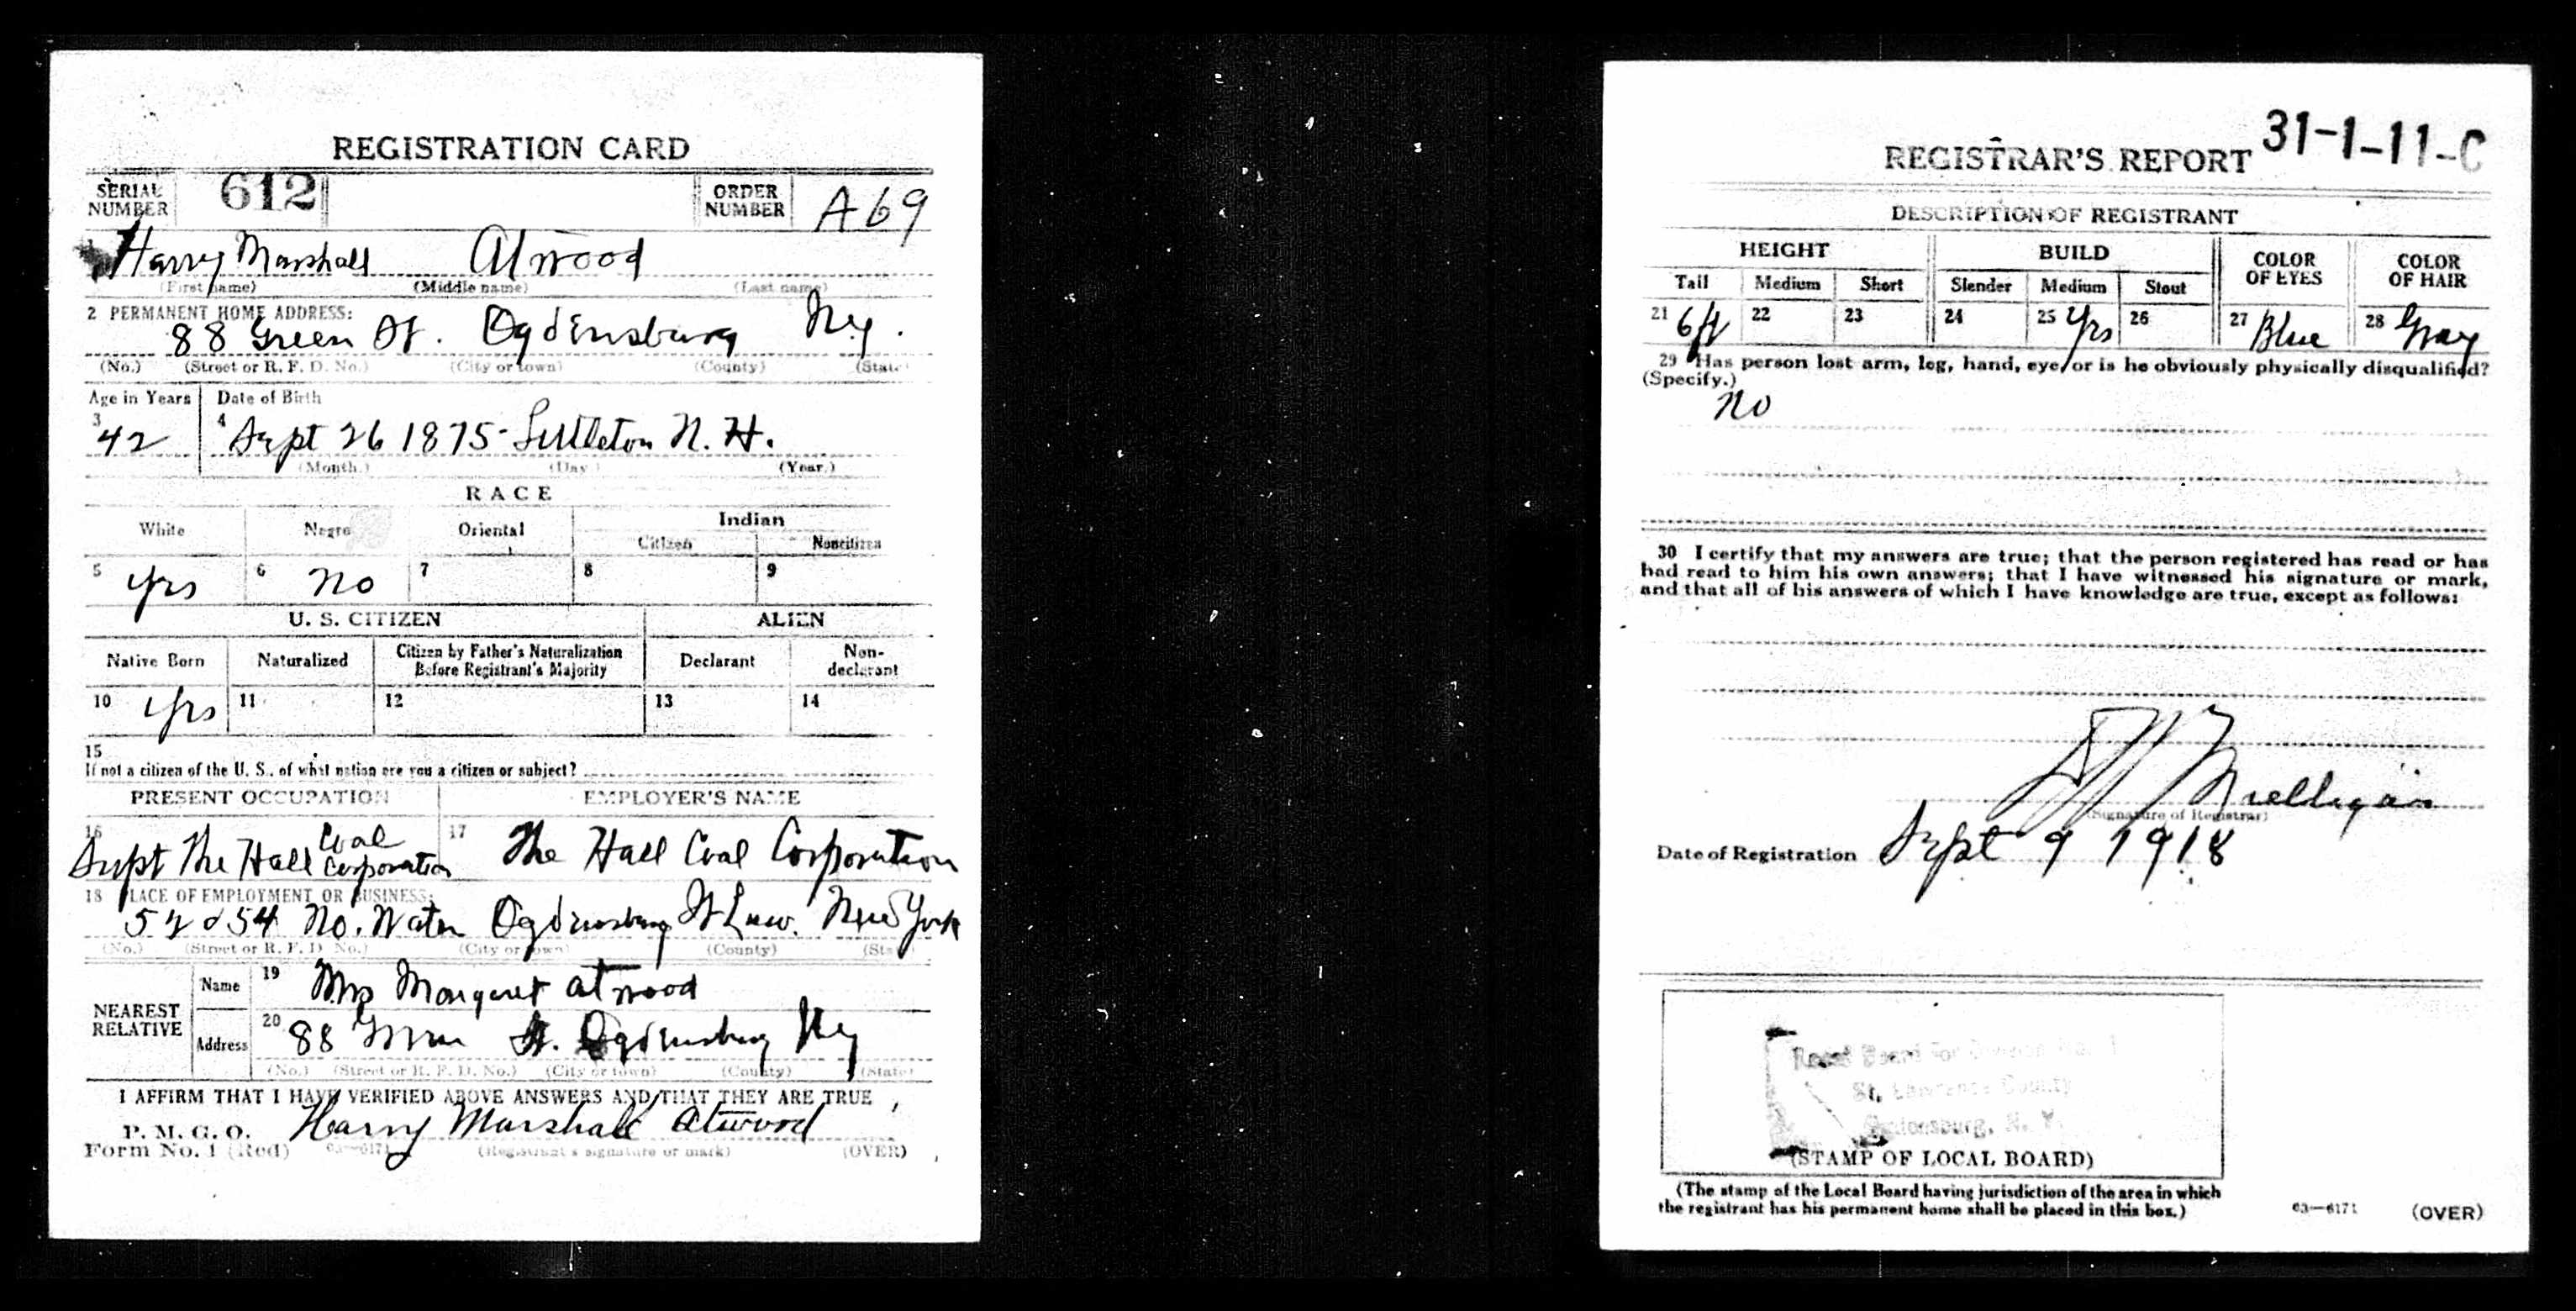 REGISTRATION CARD
SERIAL NUMBER 612 ORDER NUMBER A69
1 Harry Marshall Atwood
(First name) (Middle name) (Last name)
2 PERMANENT HOME ADDRESS:
88 Green St. Ogdensburg N.y.
(No.) (Street or R. F. D. No.) (City or town) (County) (State)
Age in Years Date of Birth
3 42 4 Sept 26 1875 - Littleton N. H.
(Month.) (Day.) (Year.)
RACE
White Negro Oriental Indian
Citizen Noncitizen
5 yes 6 no 7 8 9
U. S. CITIZEN ALIEN
Native Born Naturalized Citizen by Father's Naturalization Before Registrant's Majority Declarant Non-declarant
10 yes 11 12 13 14
15
If not a citizen of the U. S., of what nation are you a citizen or subject?
PRESENT OCCUPATION EMPLOYER'S NAME
16 Supt The Hall Coal Corporation 17 The Hall Coal Corporation
18 PLACE OF EMPLOYMENT OR BUSINESS:
52 & 54 No. Water Ogdensburg St Law. New York
(No.) (Street or R. F. D. No.) (City or town) (County) (State)
NEAREST RELATIVE
Name 19 Mrs Margaret Atwood
Address 20 88 Green St. Ogdensburg Ny
(No.) (Street or R. F. D. No.) (City or town) (County) (State)
I AFFIRM THAT I HAVE VERIFIED ABOVE ANSWERS AND THAT THEY ARE TRUE
P. M. G. O. Harry Marshall Atwood
Form No. 1 (Red) 03—6171 (Registrant's signature or mark) (OVER)
REGISTRAR'S REPORT 31-1-11-C
DESCRIPTION OF REGISTRANT
HEIGHT BUILD COLOR OF EYES COLOR OF HAIR
Tall Medium Short Slender Medium Stout
21 6ft 22 23 24 25 yes 26 27 Blue 28 Gray
29 Has person lost arm, leg, hand, eye, or is he obviously physically disqualified?
(Specify.)
no
30 I certify that my answers are true; that the person registered has read or has
had read to him his own answers; that I have witnessed his signature or mark,
and that all of his answers of which I have knowledge are true, except as follows:
(Signature of Registrar)
Date of Registration Sept 9 1918
Local Board For Division
St. Lawrence County
Ogdensburg, N. Y.
(STAMP OF LOCAL BOARD)
(The stamp of the Local Board having jurisdiction of the area in which
the registrant has his permanent home shall be placed in this box.)
03—6171 (OVER)